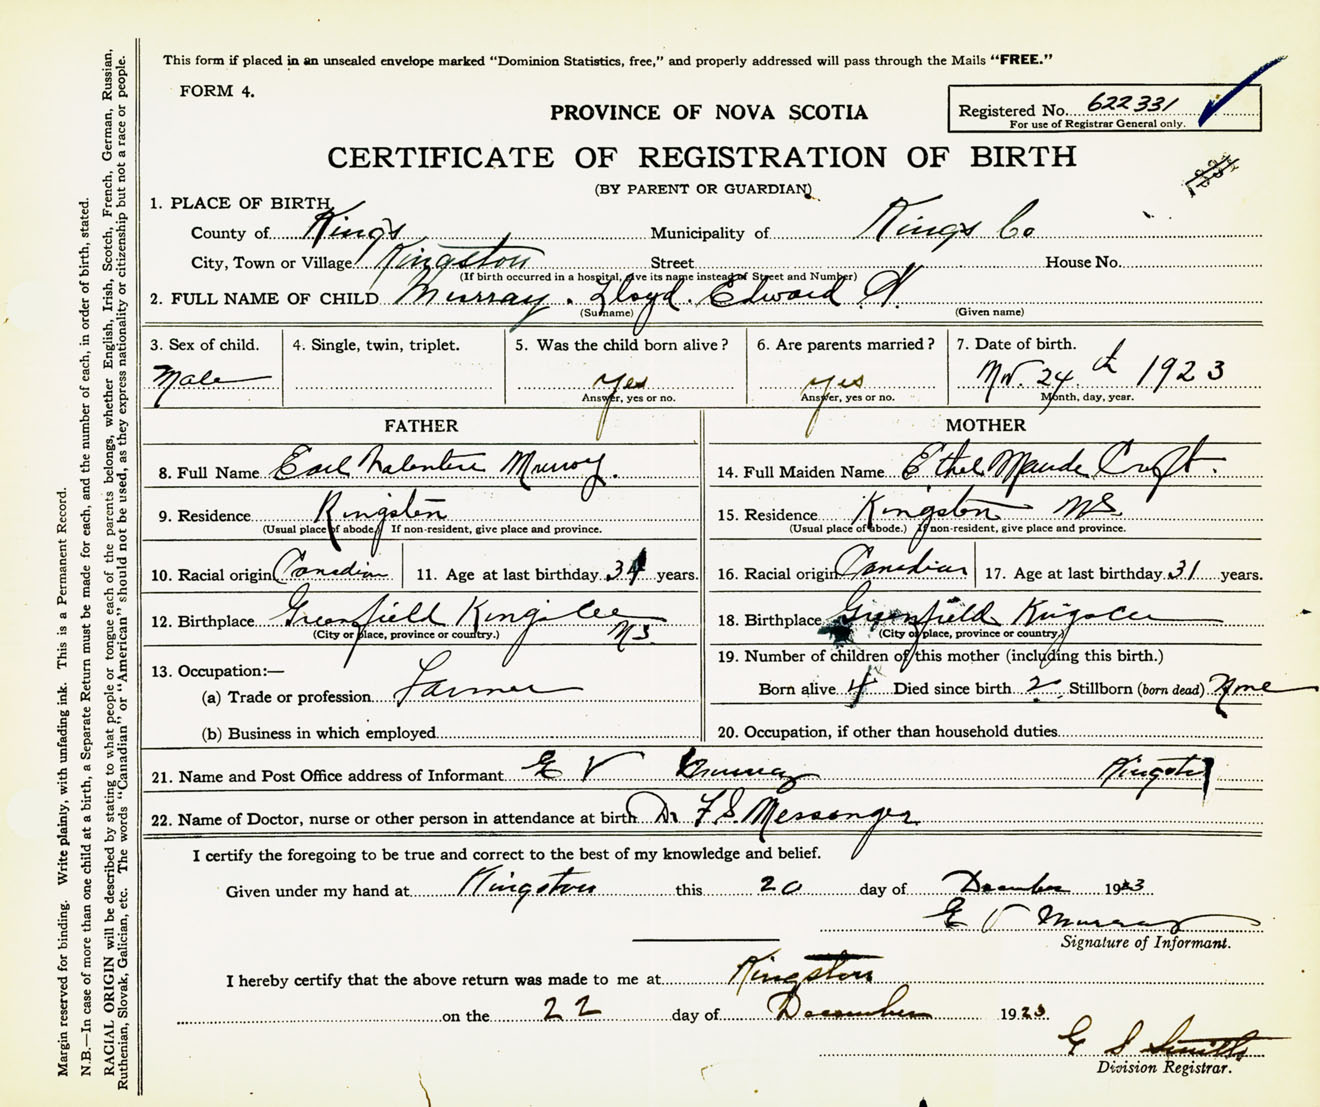 This form if placed in an unsealed envelope marked "Dominion Statistics, free," and properly addressed will pass through the Mails "FREE."
FORM 4.
PROVINCE OF NOVA SCOTIA
Registered No. 622331
For use of Registrar General only.
CERTIFICATE OF REGISTRATION OF BIRTH
(BY PARENT OR GUARDIAN)
1. PLACE OF BIRTH
County of Kings Municipality of Kings Co
City, Town or Village Kingston Street House No.
(If birth occurred in a hospital, give its name instead of Street and Number)
2. FULL NAME OF CHILD Murray. Lloyd. Edward
(Surname) (Given name)
3. Sex of child. 4. Single, twin, triplet. 5. Was the child born alive? 6. Are parents married? 7. Date of birth.
Male yes yes Nov. 24th 1923
Answer, yes or no. Answer, yes or no. Month, day, year.
FATHER MOTHER
8. Full Name Earl Valentine Murray. 14. Full Maiden Name Ethel Maude Croft.
9. Residence Kingston 15. Residence Kingston NS
(Usual place of abode.) If non-resident, give place and province. (Usual place of abode.) If non-resident, give place and province.
10. Racial origin Canadian 11. Age at last birthday 34 years. 16. Racial origin Canadian 17. Age at last birthday 31 years.
12. Birthplace Greenfield Kings Co NS 18. Birthplace Greenfield Kings Co
(City or place, province or country.) (City or place, province or country.)
13. Occupation:— 19. Number of children of this mother (including this birth.)
(a) Trade or profession Farmer Born alive 4 Died since birth 2 Stillborn (born dead) None
(b) Business in which employed 20. Occupation, if other than household duties
21. Name and Post Office address of Informant E V Murray Kingston
22. Name of Doctor, nurse or other person in attendance at birth Dr F. S. Messenger
I certify the foregoing to be true and correct to the best of my knowledge and belief.
Given under my hand at Kingston this 20 day of December 1923
E V Murray
Signature of Informant.
I hereby certify that the above return was made to me at Kingston
on the 22 day of December 1923
G S Smith
Division Registrar.
Margin reserved for binding. Write plainly, with unfading ink. This is a Permanent Record.
N.B.—In case of more than one child at a birth, a Separate Return must be made for each, and the number of each, in order of birth, stated.
RACIAL ORIGIN will be described by stating to what people or tongue each of the parents belongs, whether English, Irish, Scotch, French, German, Russian,
Ruthenian, Slovak, Galician, etc. The words "Canadian" or "American" should not be used, as they express nationality or citizenship but not a race or people.